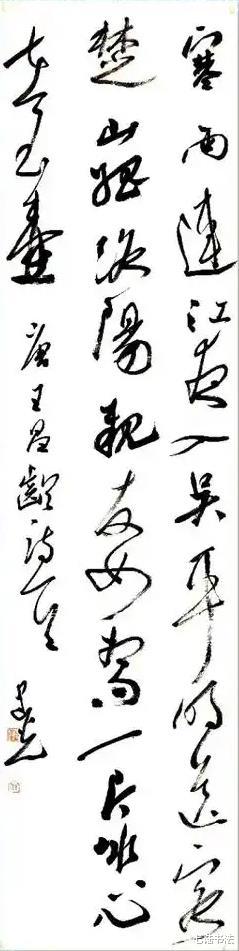 寒雨連江夜入吳平明送客
楚山孤洛陽親友如相問一片冰心
在玉壺
唐王昌齡詩一首